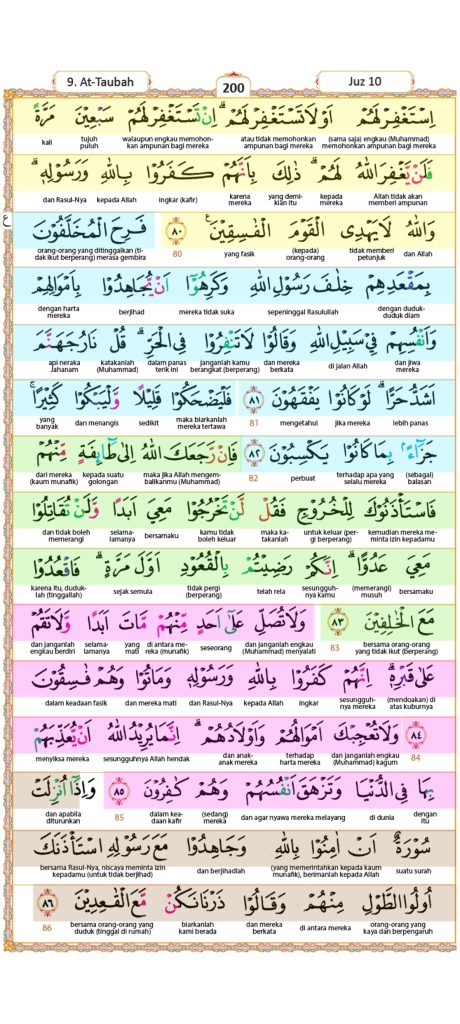 9. At-Taubah
200
Juz 10
اِسْتَغْفِرْ لَهُمْ اَوْ لَا تَسْتَغْفِرْ لَهُمْۗ اِنْ تَسْتَغْفِرْ لَهُمْ سَبْعِيْنَ مَرَّةً
(sama saja) engkau (Muhammad) memohonkan ampunan bagi mereka atau tidak memohonkan ampunan bagi mereka walaupun engkau memohonkan ampunan bagi mereka tujuh puluh kali
فَلَنْ يَّغْفِرَ اللّٰهُ لَهُمْۗ ذٰلِكَ بِاَنَّهُمْ كَفَرُوْا بِاللّٰهِ وَرَسُوْلِهٖۗ
Allah tidak akan memberi ampunan kepada mereka yang demikian itu karena mereka ingkar (kafir) kepada Allah dan Rasul-Nya
ع
وَاللّٰهُ لَا يَهْدِى الْقَوْمَ الْفٰسِقِيْنَ ࣖ ٨٠ فَرِحَ الْمُخَلَّفُوْنَ
dan Allah tidak memberi petunjuk (kepada) orang-orang yang fasik 80 orang-orang yang ditinggalkan (tidak ikut berperang) merasa gembira
بِمَقْعَدِهِمْ خِلٰفَ رَسُوْلِ اللّٰهِ وَكَرِهُوْٓا اَنْ يُّجَاهِدُوْا بِاَمْوَالِهِمْ
dengan duduk-duduk diam sepeninggal Rasulullah mereka tidak suka berjihad dengan harta mereka
وَاَنْفُسِهِمْ فِيْ سَبِيْلِ اللّٰهِ وَقَالُوْا لَا تَنْفِرُوْا فِى الْحَرِّۗ قُلْ نَارُ جَهَنَّمَ
dan jiwa mereka di jalan Allah dan mereka berkata janganlah kamu berangkat (berperang) dalam panas terik ini katakanlah (Muhammad) api neraka Jahanam
اَشَدُّ حَرًّاۗ لَوْ كَانُوْا يَفْقَهُوْنَ ٨١ فَلْيَضْحَكُوْا قَلِيْلًا وَّلْيَبْكُوْا كَثِيْرًاۚ
lebih panas jika mereka mengetahui 81 maka biarkanlah mereka tertawa sedikit dan menangis yang banyak
جَزَاۤءًۢ بِمَا كَانُوْا يَكْسِبُوْنَ ٨٢ فَاِنْ رَّجَعَكَ اللّٰهُ اِلٰى طَاۤىِٕفَةٍ مِّنْهُمْ
(sebagai) balasan terhadap apa yang selalu mereka perbuat 82 maka jika Allah mengembalikanmu (Muhammad) kepada suatu golongan dari mereka (kaum munafik)
فَاسْتَأْذَنُوْكَ لِلْخُرُوْجِ فَقُلْ لَّنْ تَخْرُجُوْا مَعِيَ اَبَدًا وَّلَنْ تُقَاتِلُوْا
kemudian mereka meminta izin kepadamu untuk keluar (pergi berperang) maka katakanlah kamu tidak boleh keluar bersamaku selama-lamanya dan tidak boleh memerangi
مَعِيَ عَدُوًّاۗ اِنَّكُمْ رَضِيْتُمْ بِالْقُعُوْدِ اَوَّلَ مَرَّةٍۗ فَاقْعُدُوْا
bersamaku (memerangi) musuh sesungguhnya kamu telah rela tidak pergi (berperang) sejak semula karena itu, duduklah (tinggallah)
مَعَ الْخٰلِفِيْنَ ٨٣ وَلَا تُصَلِّ عَلٰٓى اَحَدٍ مِّنْهُمْ مَّاتَ اَبَدًا وَّلَا تَقُمْ
bersama orang-orang yang tidak ikut (berperang) 83 dan janganlah engkau (Muhammad) menyalati seseorang di antara mereka (munafik) yang mati selama-lamanya dan janganlah engkau berdiri
عَلٰى قَبْرِهٖۗ اِنَّهُمْ كَفَرُوْا بِاللّٰهِ وَرَسُوْلِهٖ وَمَاتُوْا وَهُمْ فٰسِقُوْنَ
(mendoakan) di atas kuburnya sesungguhnya mereka ingkar kepada Allah dan Rasul-Nya dan mereka mati dalam keadaan fasik
٨٤ وَلَا تُعْجِبْكَ اَمْوَالُهُمْ وَاَوْلَادُهُمْۗ اِنَّمَا يُرِيْدُ اللّٰهُ اَنْ يُّعَذِّبَهُمْ
84 dan janganlah engkau (Muhammad) kagum terhadap harta mereka dan anak-anak mereka sesungguhnya Allah hendak menyiksa mereka
بِهَا فِى الدُّنْيَا وَتَزْهَقَ اَنْفُسُهُمْ وَهُمْ كٰفِرُوْنَ ٨٥ وَاِذَآ اُنْزِلَتْ
dengan itu di dunia dan agar nyawa mereka melayang (sedang) mereka dalam keadaan kafir 85 dan apabila diturunkan
سُوْرَةٌ اَنْ اٰمِنُوْا بِاللّٰهِ وَجَاهِدُوْا مَعَ رَسُوْلِهِ اسْتَأْذَنَكَ
suatu surah (yang memerintahkan kepada kaum munafik), berimanlah kepada Allah dan berjihadlah bersama Rasul-Nya, niscaya meminta izin kepadamu (untuk tidak berjihad)
اُولُوا الطَّوْلِ مِنْهُمْ وَقَالُوْا ذَرْنَا نَكُنْ مَّعَ الْقٰعِدِيْنَ ٨٦
orang-orang yang kaya dan berpengaruh di antara mereka dan mereka berkata biarkanlah kami berada bersama orang-orang yang duduk (tinggal di rumah) 86